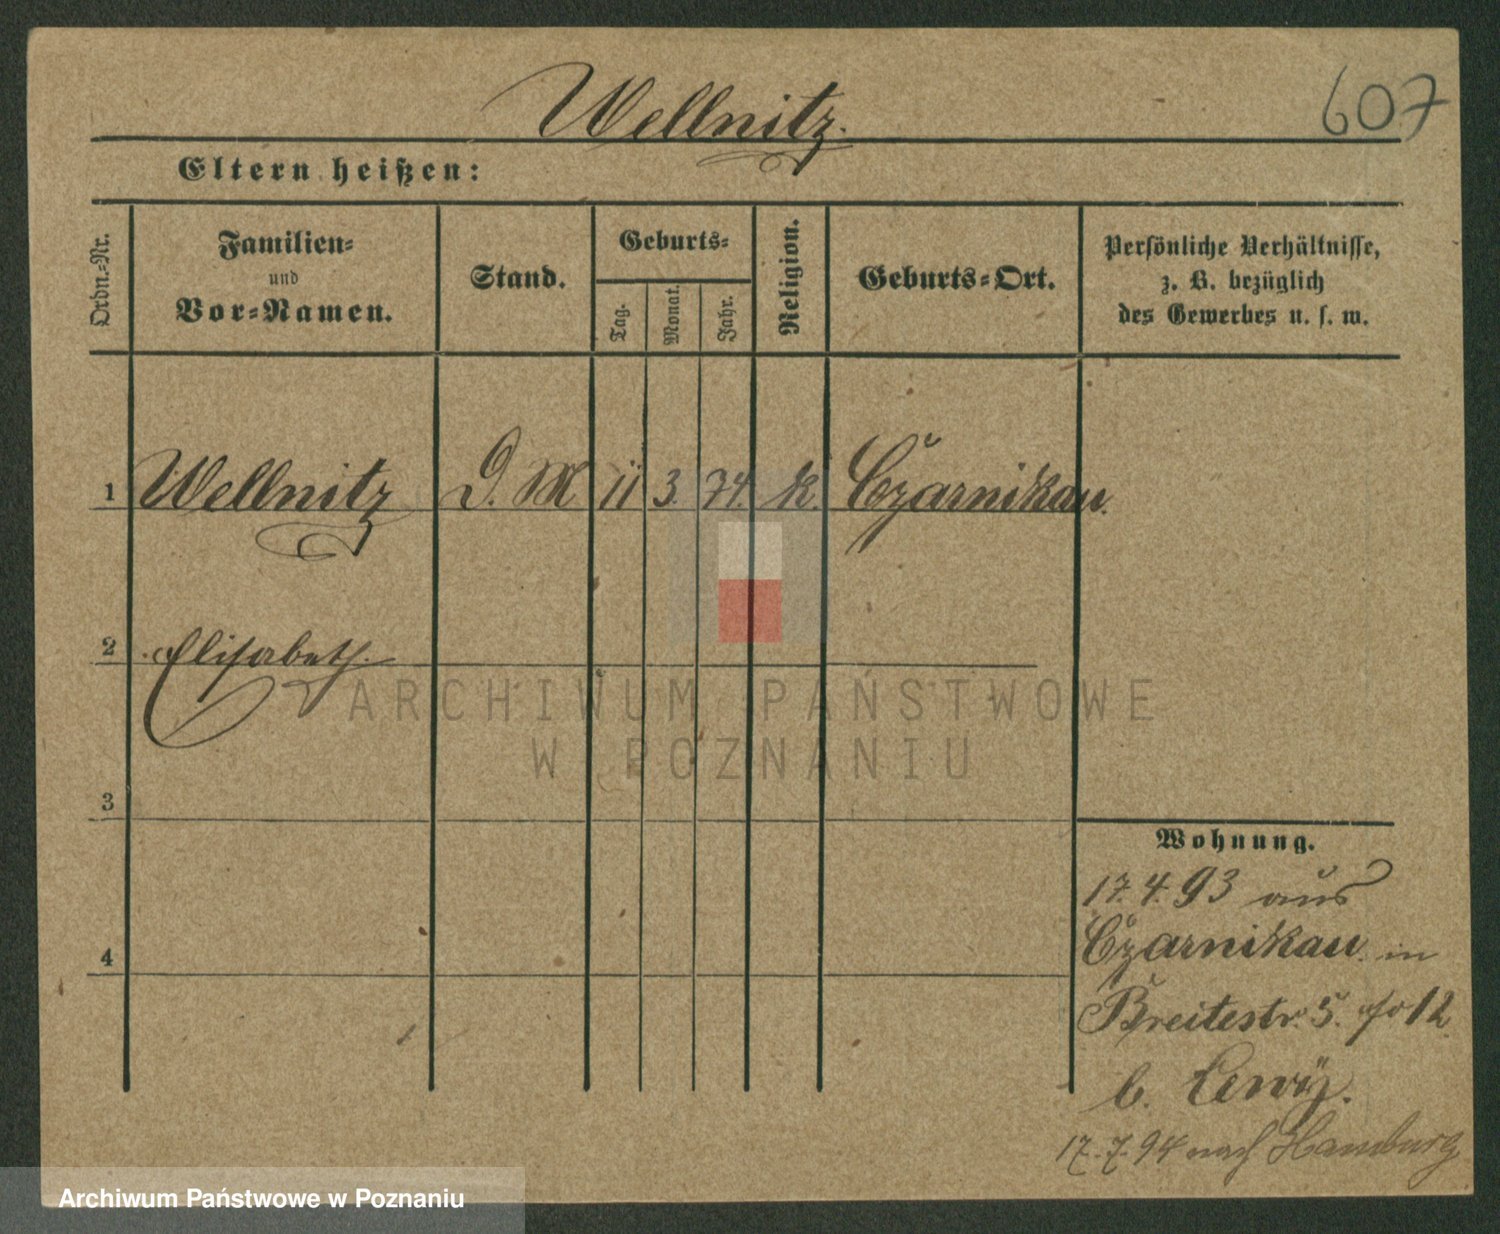 Wellnitz.
607
Eltern heißen:
Ordn.-Nr.
Familien-
und
Vor-Namen.
Stand.
Geburts-
Tag.
Monat.
Jahr.
Religion.
Geburts-Ort.
Persönliche Verhältnisse,
z. B. bezüglich
des Gewerbes u. s. w.
1 Wellnitz D. M 11 3. 74. k. Czarnikau.
2 Elisabeth.
ARCHIWUM PAŃSTWOWE
W POZNANIU
3
Wohnung.
17.4.93 aus
Czarnikau in
4
Breitestr. 5. 12
b. Lewy.
17.7.94 nach Hamburg
Archiwum Państwowe w Poznaniu